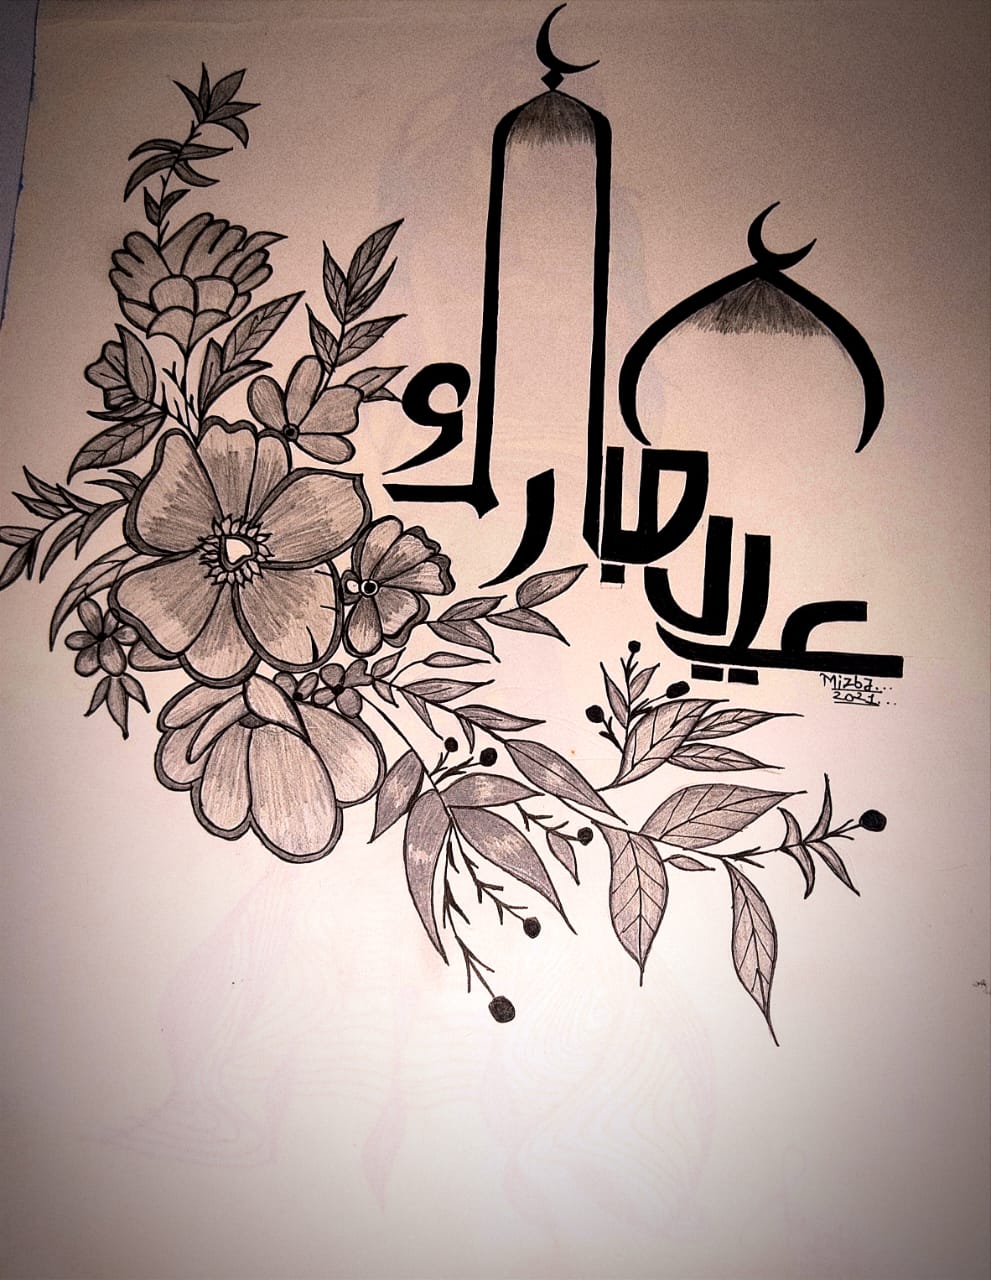 عيد مبارك
Mizba...
2021...